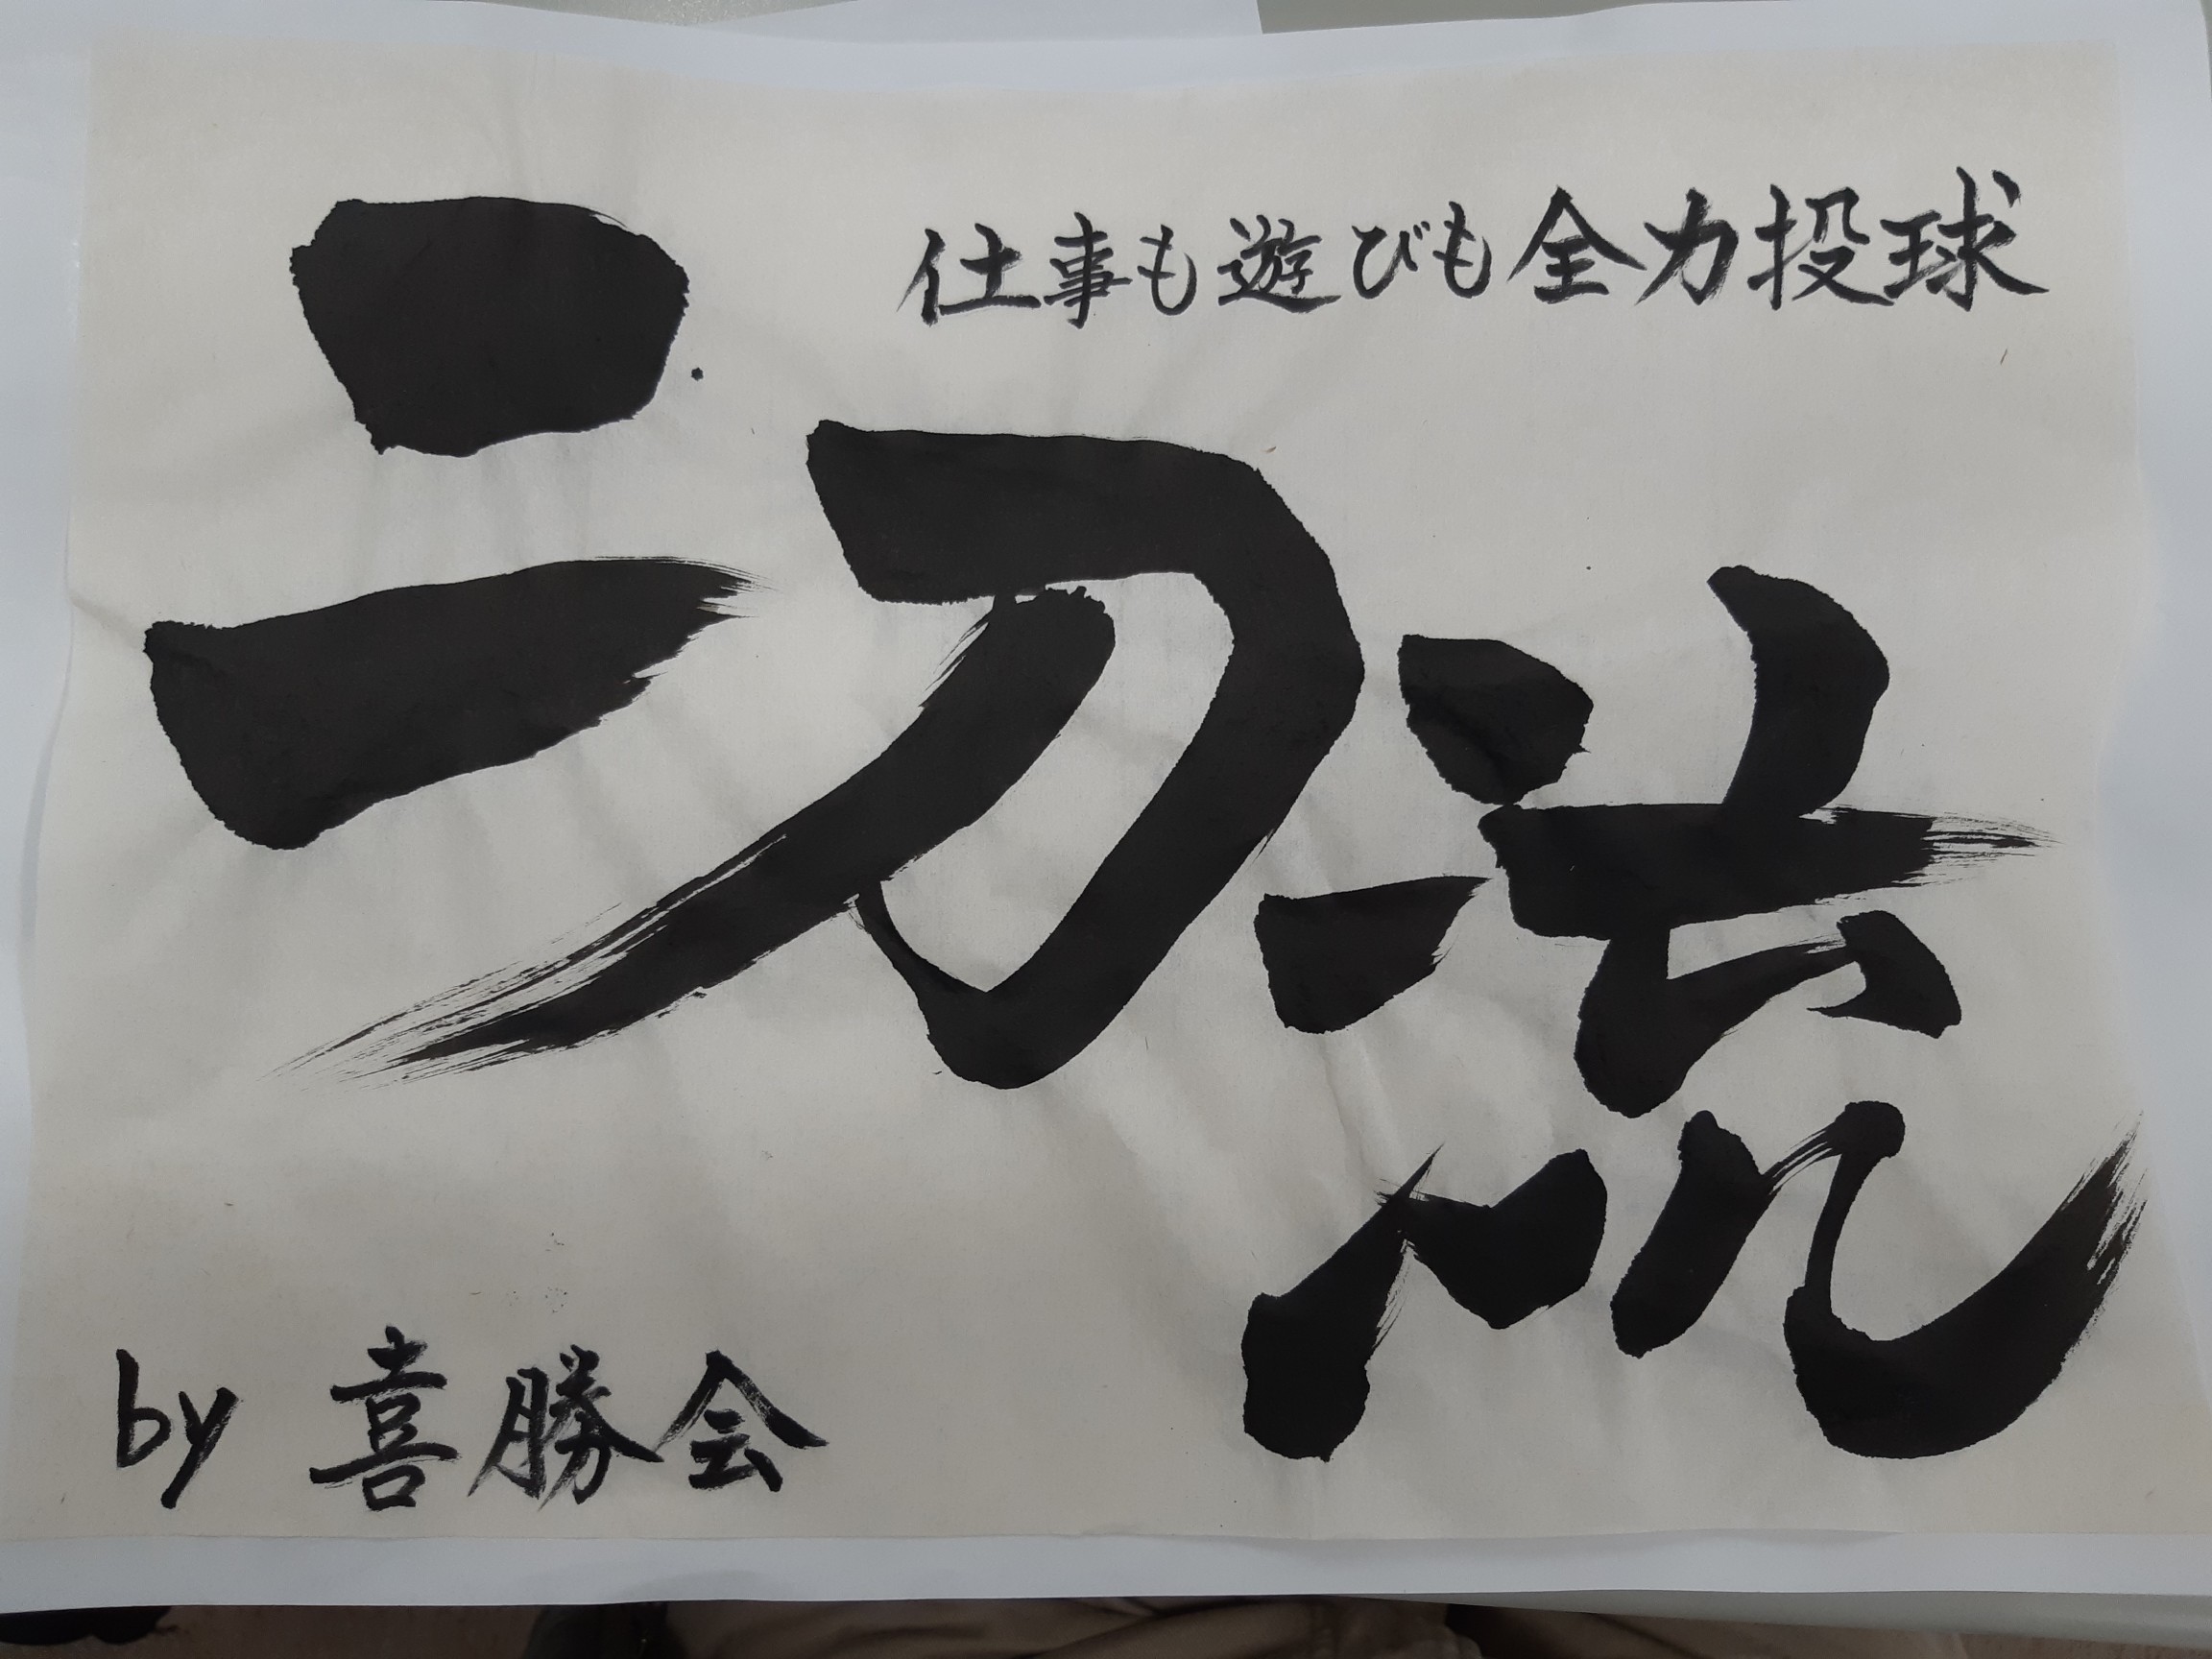 仕事も遊びも全力投球
二刀流
by 喜勝会